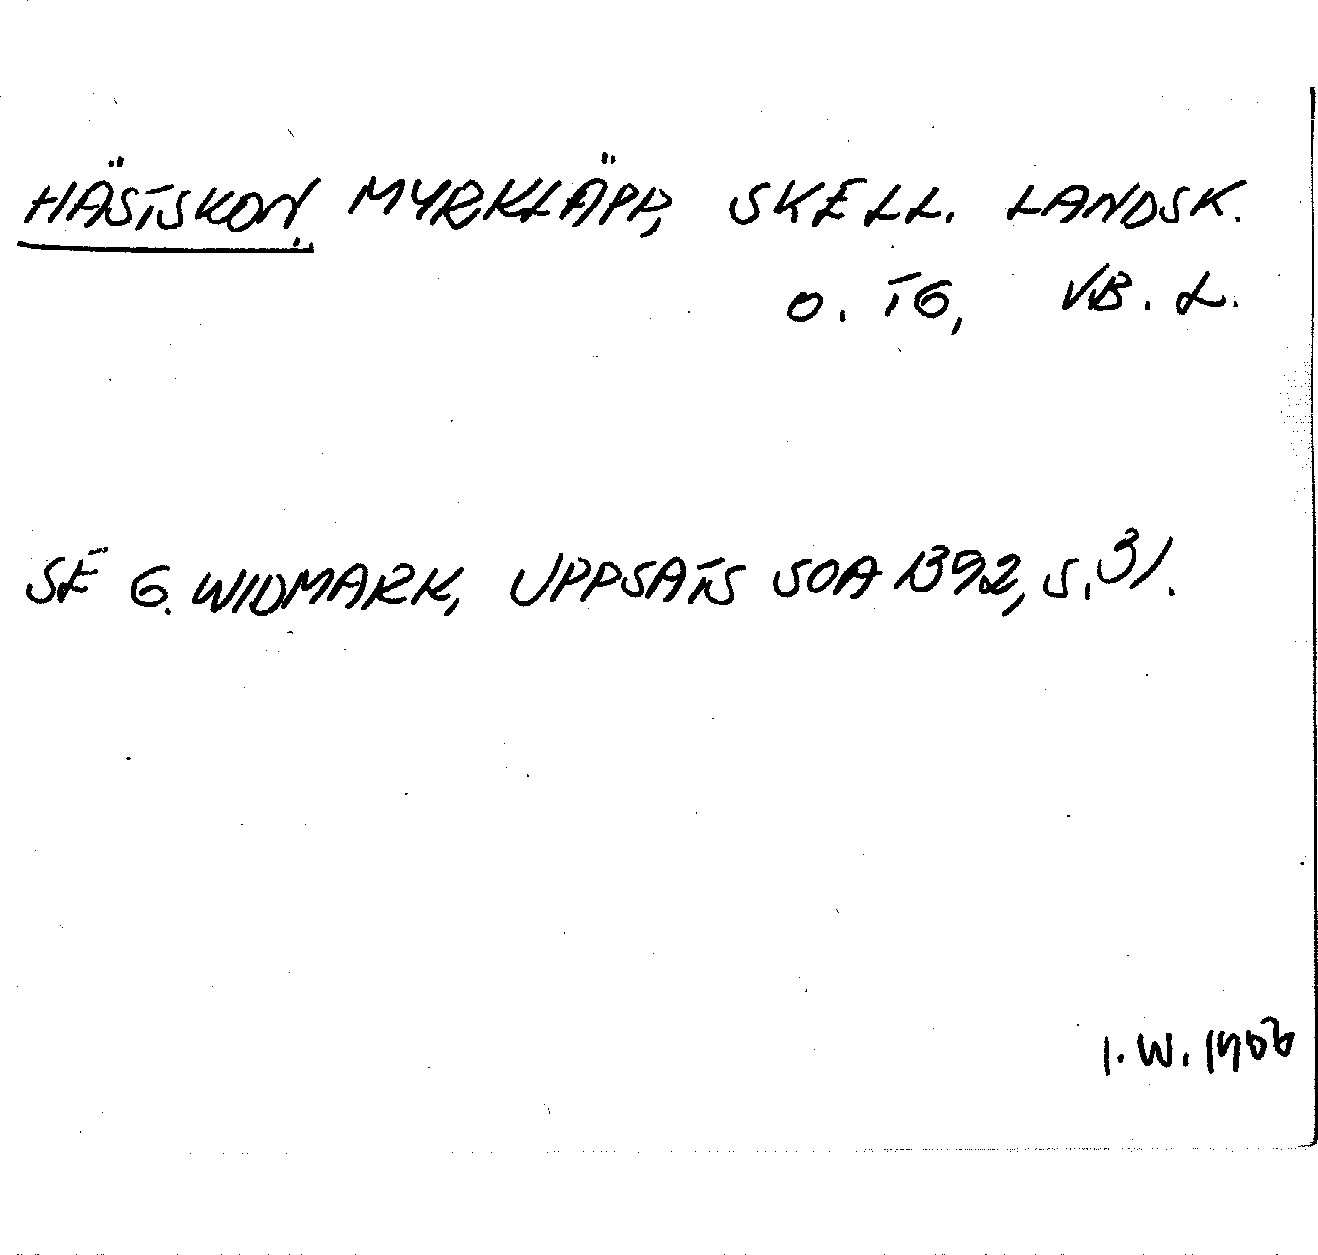 HÄSTSKON, MYRKLÄPP, SKELL. LANDSK.
O. TG, VB. L.
SE G. WIDMARK, UPPSATS SOA 1392, S. 31.
I. W.